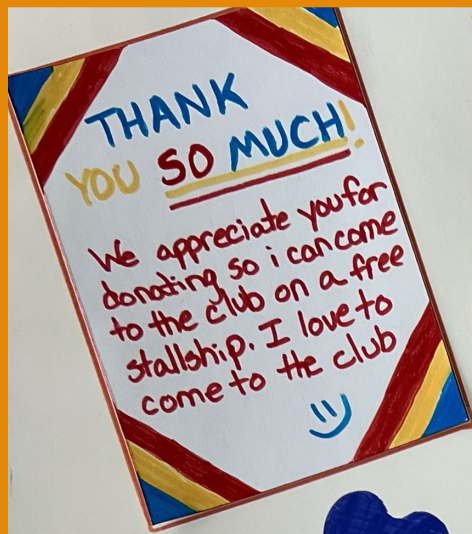 THANK
YOU SO MUCH!
We appreciate you for
donating so i can come
to the club on a free
stallship. I love to
come to the club